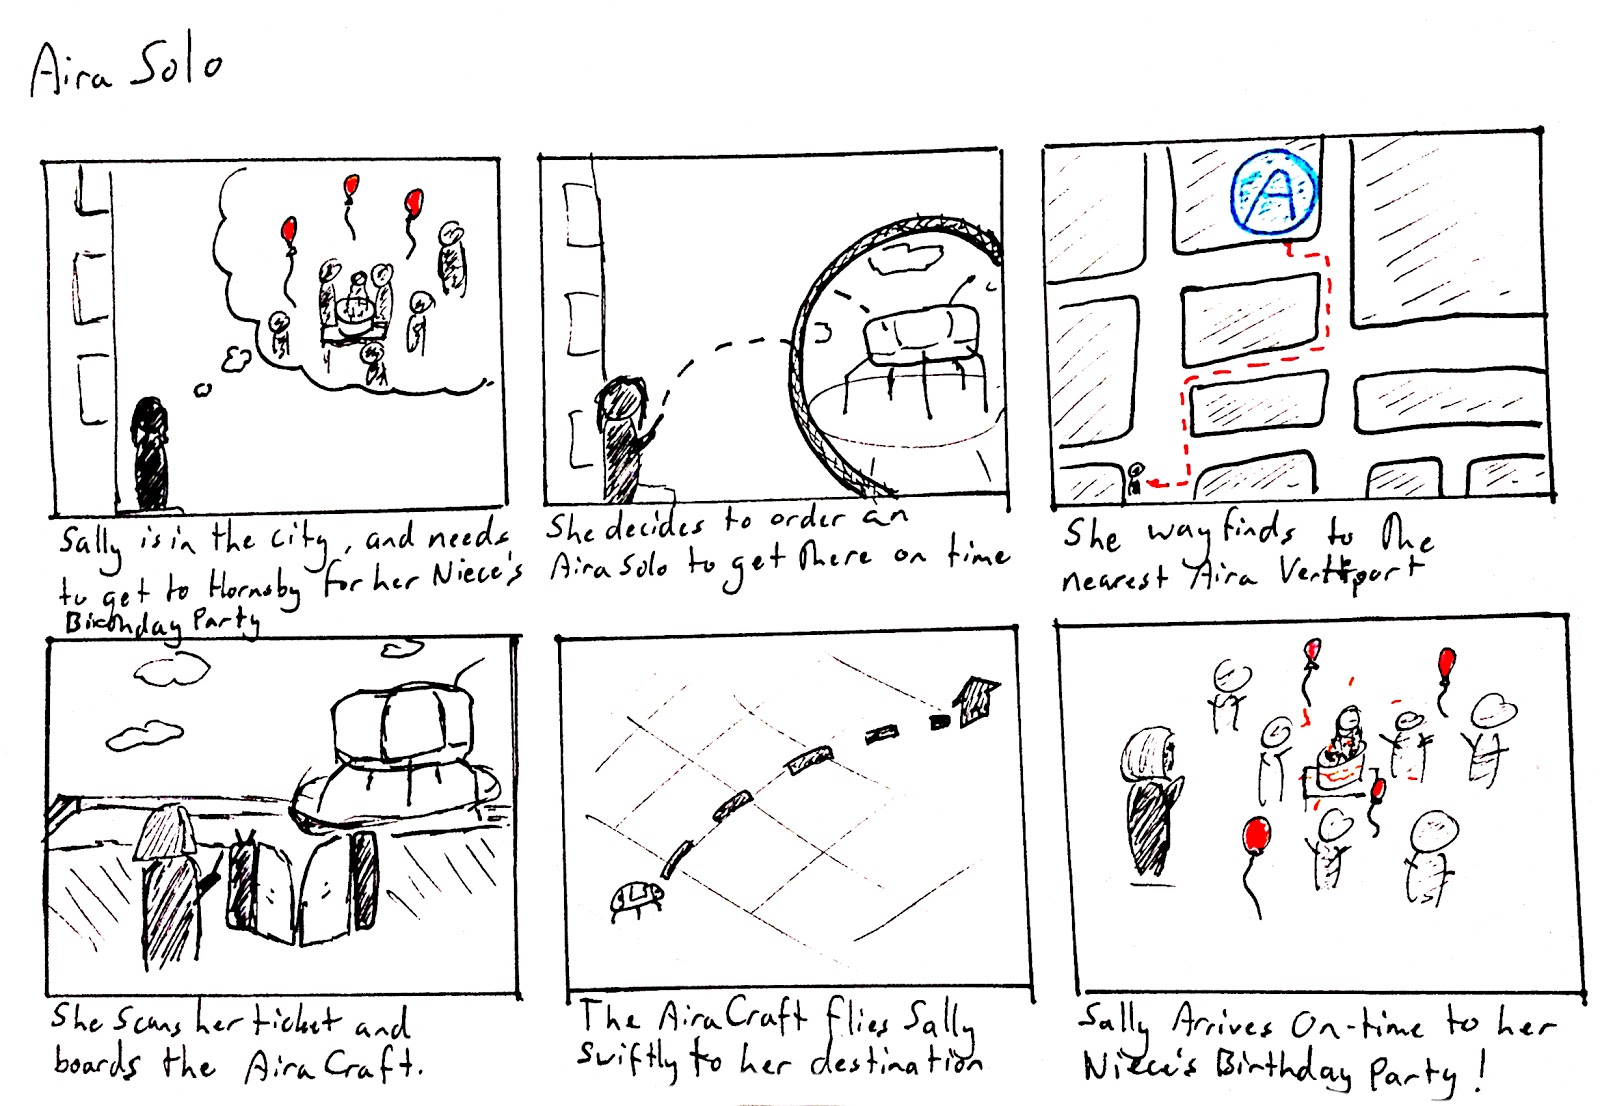 Aira Solo
A
Sally is in the city, and needs
to get to Hornsby for her Niece's
Birthday Party
She decides to order an
Aira Solo to get there on time
She way finds to the
nearest Aira Vertiport
She scans her ticket and
boards the Aira Craft.
The Aira Craft flies Sally
swiftly to her destination
Sally Arrives On-time to her
Niece's Birthday Party!